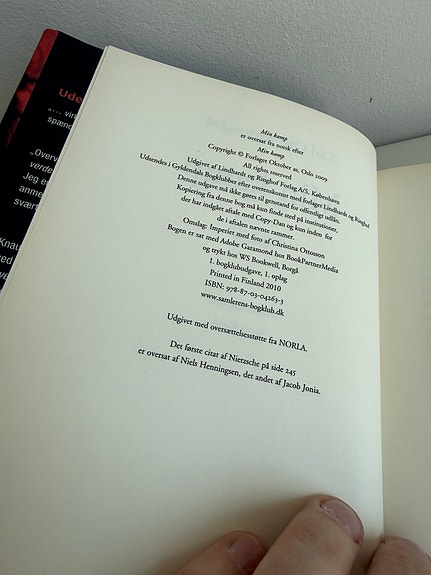 Ude
"... vir
spænd
„Overv
verde
Jeg e
anme
svært
Knau
ned
Min kamp
er oversat fra norsk efter
Min kamp
Copyright © Forlaget Oktober as, Oslo 2009
All rights reserved
Udgivet af Lindhardt og Ringhof Forlag A/S, København
Udsendes i Gyldendals Bogklubber efter overenskomst med forlaget Lindhardt og Ringhof
Denne udgave må ikke gøres til genstand for offentligt udlån.
Kopiering fra denne bog må kun finde sted på institutioner,
der har indgået aftale med Copy-Dan og kun inden for
de i aftalen nævnte rammer
Omslag: Imperiet med foto af Christina Ottosson
Bogen er sat med Adobe Garamond hos BookPartnerMedia
og trykt hos WS Bookwell, Borgå
1. bogklubudgave, 1. oplag
Printed in Finland 2010
ISBN: 978-87-03-04263-3
www.samlerens-bogklub.dk
Udgivet med oversættelsesstøtte fra NORLA.
Det første citat af Nietzsche på side 245
er oversat af Niels Henningsen, det andet af Jacob Jonia.